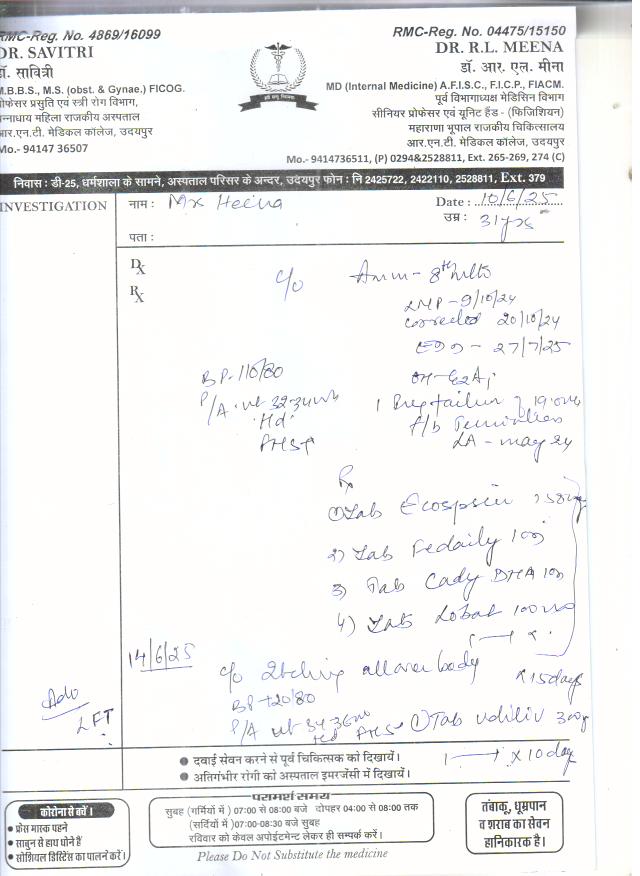 RMC-Reg. No. 4869/16099
DR. SAVITRI
डॉ. सावित्री
M.B.B.S., M.S. (obst. & Gynae,) FICOG.
प्रोफेसर प्रसुति एवं स्त्री रोग विभाग,
पन्नाधाय महिला राजकीय अस्पताल
आर.एन.टी. मेडिकल कॉलेज, उदयपुर
Mo.- 94147 36507
RMC-Reg. No. 04475/15150
DR. R.L. MEENA
डॉ. आर. एल. मीना
MD (Internal Medicine) A.F.I.S.C., F.I.C.P., FIACM.
पूर्व विभागाध्यक्ष मेडिसिन विभाग
सीनियर प्रोफेसर एवं यूनिट हैड - (फिजिशियन)
महाराणा भूपाल राजकीय चिकित्सालय
आर.एन.टी. मेडिकल कॉलेज, उदयपुर
Mo.- 9414736511, (P) 0294&2528811, Ext. 265-269, 274 (C)
निवास : डी-25, धर्मशाला के सामने, अस्पताल परिसर के अन्दर, उदयपुर फोन : नि 2425722, 2422110, 2528811, Ext. 379
INVESTIGATION
नाम : Mx Heena
Date : 10/6/25
उम्र : 31yrs
पता :
Dx
Rx
c/o 8th
LMP - 9/10/24
corrected 20/10/24
EDD - 27/7/25
BP - 110/80
OH - G2A1
P/A - ut 32-34wk
'Hd'
FHS+
1 Preg failure
f/b
LA - may 24
Rx
1) Tab Ecosprin
2) Tab Fedaily 1on
3) Tab Cady DHA 1on
4) Tab Lobat 100
x 15days
14/6/25
c/o Itching all over body
BP - 120/80
P/A ut 34-36w
Hd FHS
Adv
LFT
1) Tab udiliv 300g
1 x 10 day
दवाई सेवन करने से पूर्व चिकित्सक को दिखायें।
अतिगंभीर रोगी को अस्पताल इमरजेंसी में दिखायें।
कोरोना से बचें।
फ्रेस मास्क पहने
साबुन से हाथ धोने हैं
सोशियल डिस्टिेंस का पालने करें।
परामर्श समय
सुबह (गर्मियों में) 07:00 से 08:00 बजे दोपहर 04:00 से 08:00 तक
(सर्दियों में) 07:00-08:30 बजे सुबह
रविवार को केवल अपोईंटमेन्ट लेकर ही सम्पर्क करें।
Please Do Not Substitute the medicine
तंबाकू, धूम्रपान
व शराब का सेवन
हानिकारक है।